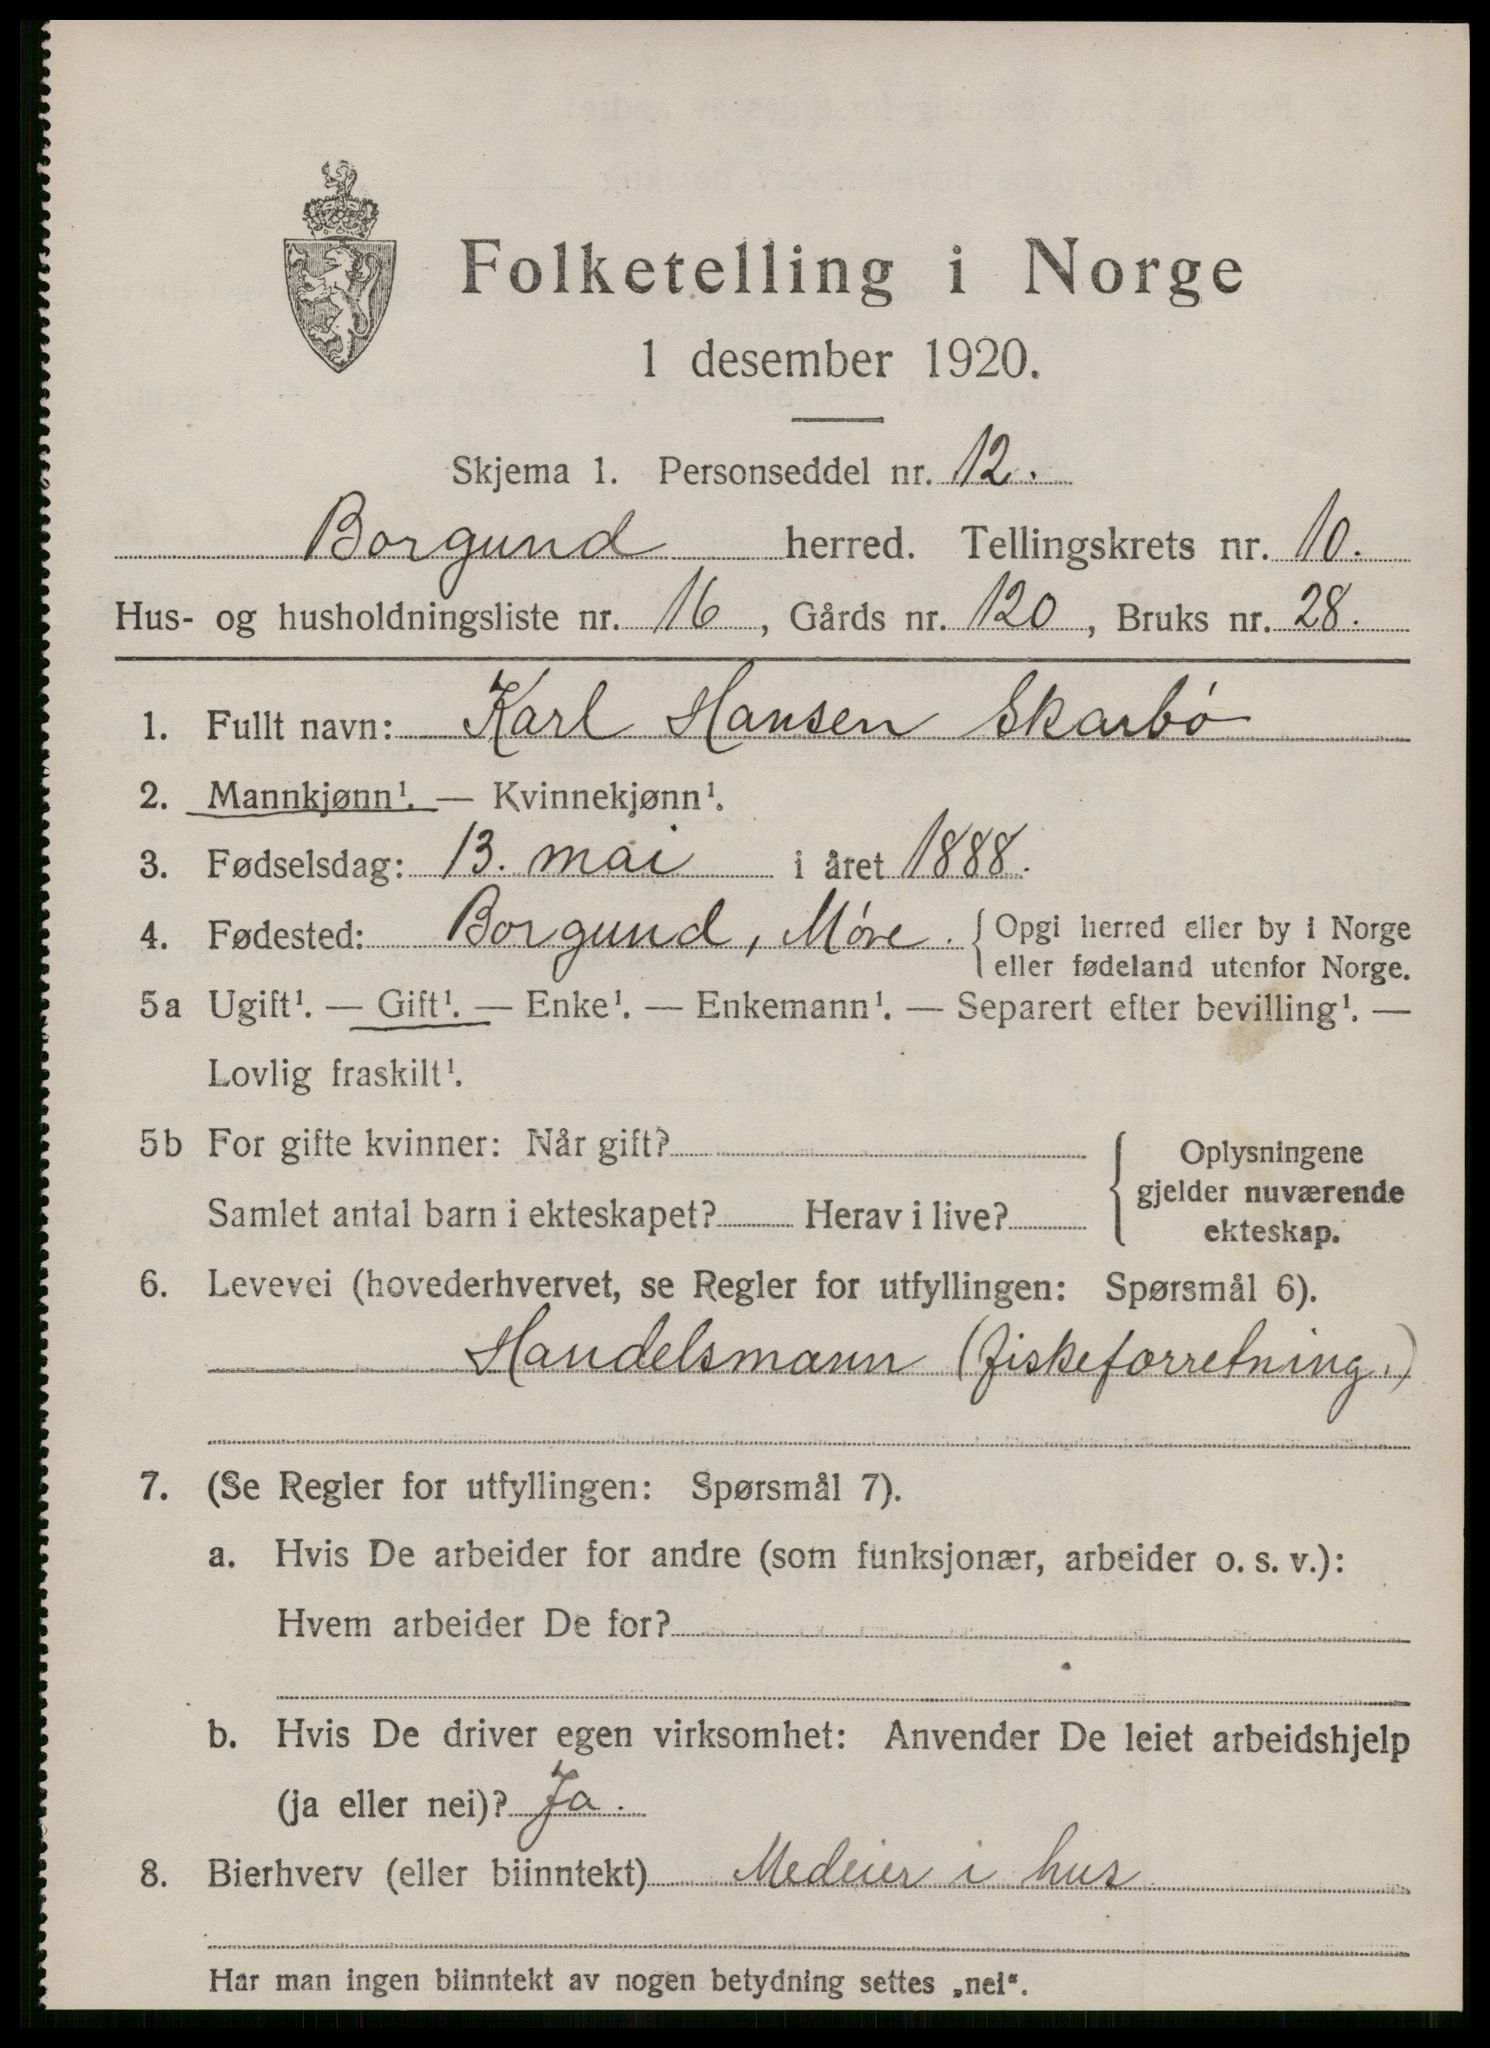 Folketelling i Norge
1 desember 1920.
Skjema 1. Personseddel nr. 12.
Borgund herred. Tellingskrets nr. 10.
Hus- og husholdningsliste nr. 16, Gårds nr. 120, Bruks nr. 28.
1. Fullt navn: Karl Hansen Skarbó
2. Mannkjønn¹. — Kvinnekjønn¹.
3. Fødselsdag: 13. mai i året 1888.
4. Fødested: Borgund, Móre. { Opgi herred eller by i Norge
eller fødeland utenfor Norge.
5a Ugift¹. — Gift¹. — Enke¹. — Enkemann¹. — Separert efter bevilling¹. —
Lovlig fraskilt¹.
5b For gifte kvinner: Når gift?
Samlet antal barn i ekteskapet? Herav i live?
{ Oplysningene
gjelder nuværende
ekteskap.
6. Levevei (hovederhvervet, se Regler for utfyllingen: Spørsmål 6).
Handelsmann (fiskeforretning.)
7. (Se Regler for utfyllingen: Spørsmål 7).
a. Hvis De arbeider for andre (som funksjonær, arbeider o. s. v.):
Hvem arbeider De for?
b. Hvis De driver egen virksomhet: Anvender De leiet arbeidshjelp
(ja eller nei)? Ja.
8. Bierhverv (eller biinntekt) Medeier i hus
Har man ingen biinntekt av nogen betydning settes „nei“.